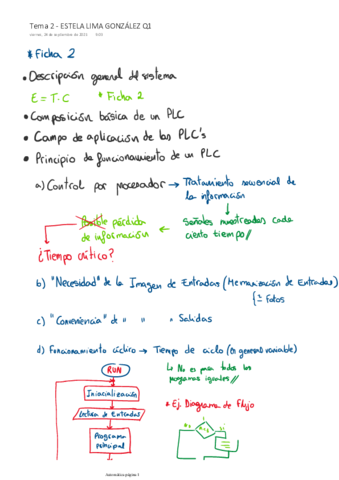 Tema 2 - ESTELA LIMA GONZÁLEZ Q1
* Ficha 2
• Descripción general del sistema
E = T. C * Ficha 2
• Composición básica de un PLC
• Campo de aplicación de los PLC's
• Principio de funcionamiento de un PLC
a) Control por procesador → Tratamiento secuencial de
la información
Señales muestreadas cada
cierto tiempo//
Posible pérdida
de información
¿Tiempo crítico?
b) "Necesidad" de la Imagen de Entradas (Memorización de Entradas)
Fotos
c) "Conveniencia" de " " " Salidas
d) Funcionamiento cíclico → Tiempo de ciclo (en general variable)
RUN
↳ No es para todos los
programas iguales//
Iniacialización
Lectura de Entradas
Programa
principal
* Ej. Diagrama de Flujo
Automática página 1